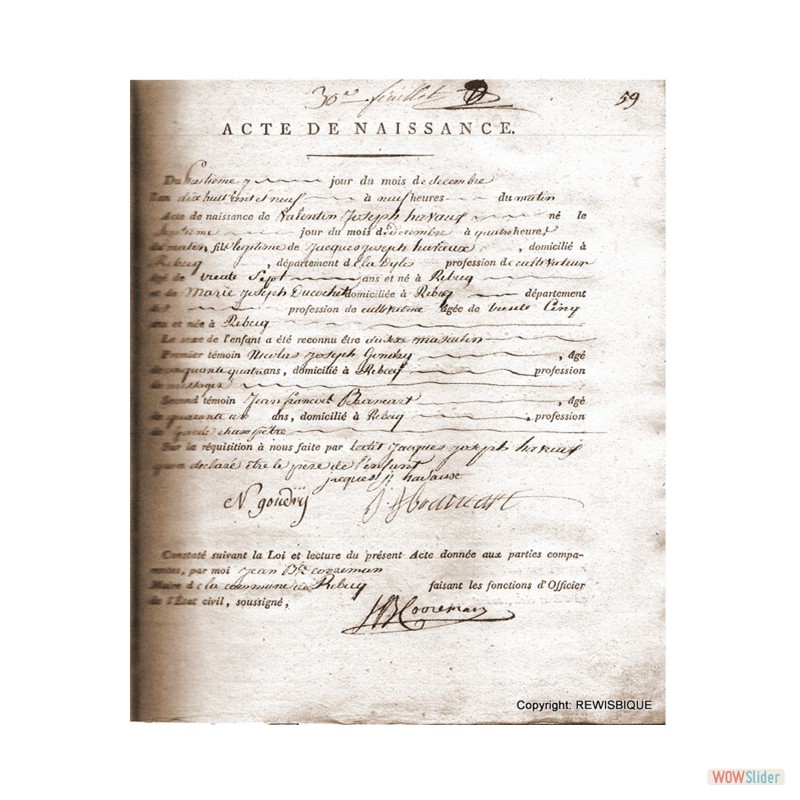 30e feuillet 59
ACTE DE NAISSANCE.
Du huitième jour du mois de decembre
L'an dix huit cent et neuf à neuf heures du matin
Acte de naissance de Valentin Joseph havaux né le
Septième jour du mois de decembre à quatre heures
du matin fils legitime de Jacques joseph havaux , domicilié à
Rebecq , département de la Dyle profession de cultivateur
âgé de trente Sept ans et né à Rebecq
et de Marie joseph domiciliée à Rebecq département
d profession de âgée de trente Cinq
ans et née à Rebecq
Le sexe de l'enfant a été reconnu être masculin
Premier témoin Nicolas Joseph Gondry , âgé
de cinquante quatre ans, domicilié à Rebecq profession
de messager
Second témoin Jean françois , âgé
de quarante un ans, domicilié à Rebecq , profession
de garde champêtre
Sur la réquisition à nous faite par ledit Jacques joseph havaux
qui a declaré être le père de l'enfant
jacques j: havaux
N gondrij J J
Constaté suivant la Loi et lecture du présent Acte donnée aux parties compa-
rantes, par moi Jean Bte cooreman
Maire de la commune de Rebecq faisant les fonctions d'Officier
de l'État civil, soussigné,
JB Cooreman
Copyright: REWISBIQUE
WOWSlider